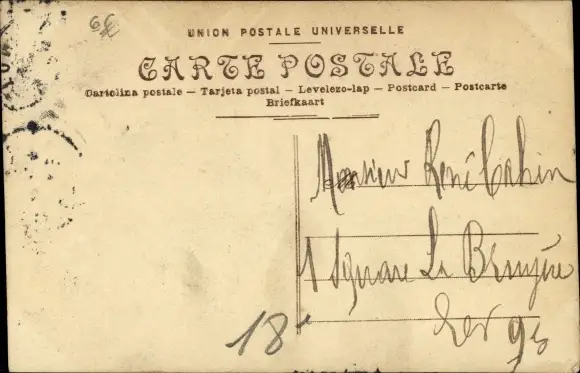 6€
UNION POSTALE UNIVERSELLE
CARTE POSTALE
Cartolina postale — Tarjeta postal — Levelezo-lap — Postcard — Postcarte
Briefkaart
Monsieur René Cahin
1 Square La Bruyère
18e